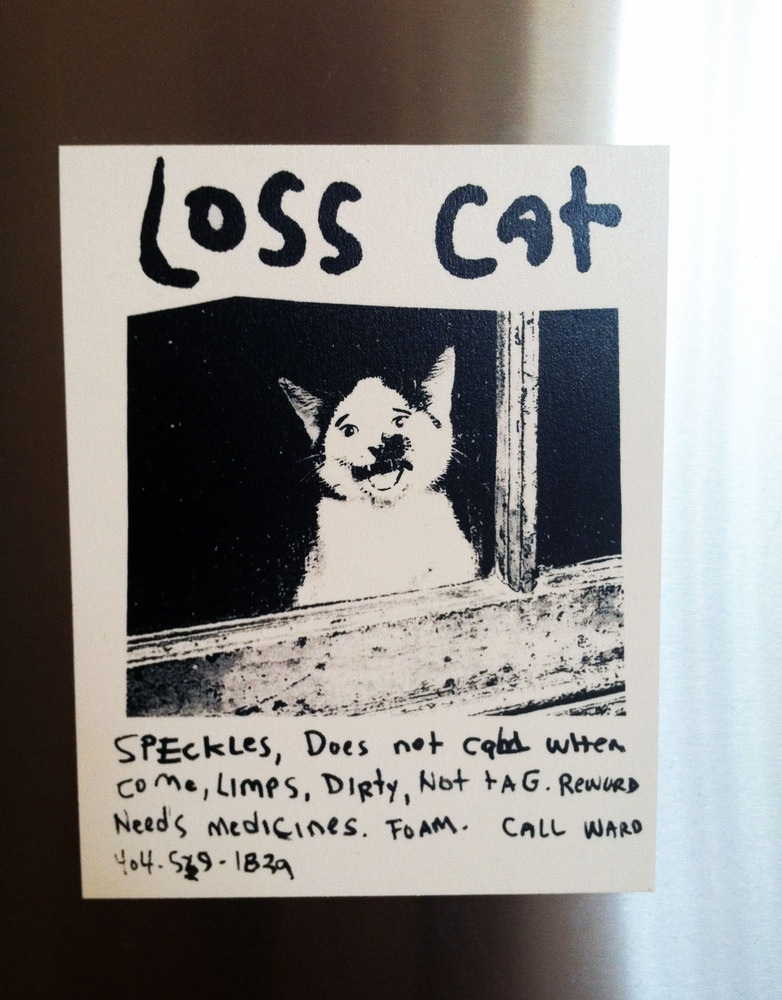 Loss cat
SPEckLes, Does not when
come, LIMPS, DIRty, Not tAG. REWURD
Needs medicines. FOAM. CALL WARD
404. -1829